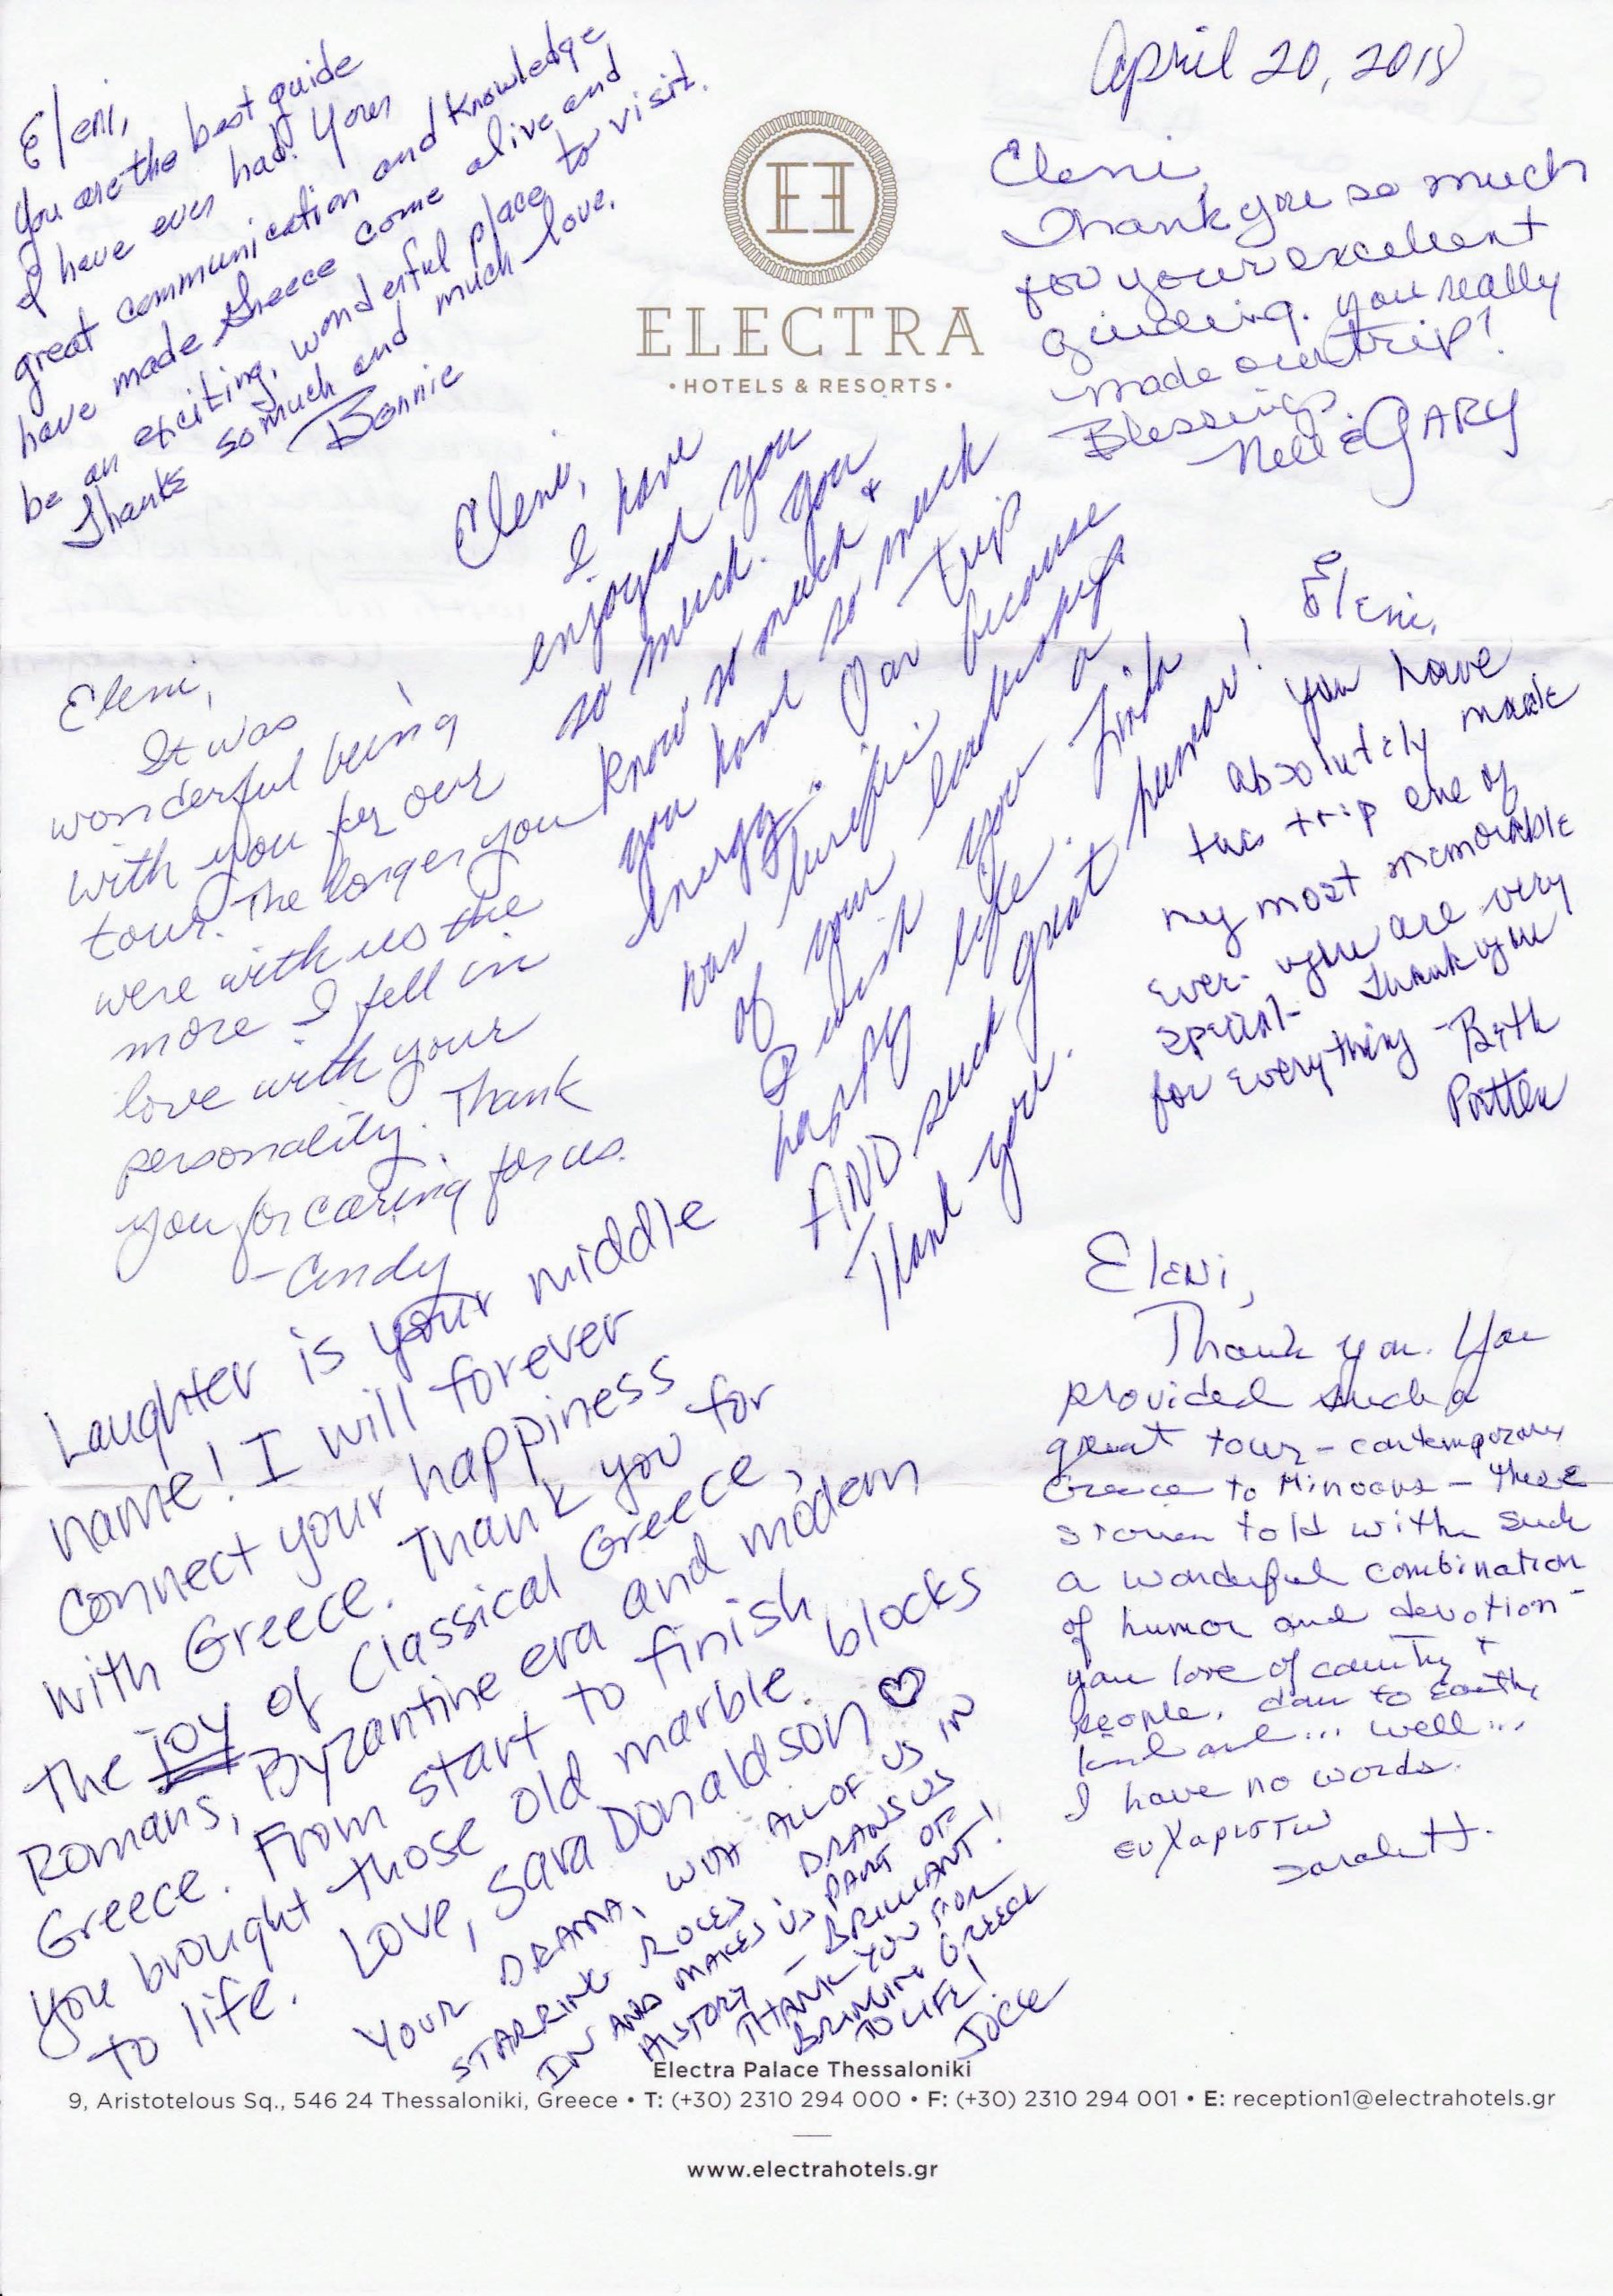 April 20, 2018
Eleni,
You are the best guide
I have ever had. Your
great communication and knowledge
have made Greece come alive and
be an exciting, wonderful place to visit.
Thanks so much and much love,
Bonnie
ELECTRA
• HOTELS & RESORTS •
Eleni,
Thank you so much
for your excellent
guiding. You really
made our trip!
Blessings,
Nell & GARY
Eleni,
I have
enjoyed you
so much. You
know so much &
you have so much
energy. Our trip
was terrific because
of your leadership
I wish you a
happy life. Linda
AND such great humor!
Thank you.
Eleni,
You have
absolutely made
this trip one of
my most memorable
ever. You are very
special. Thank you
for everything - Beth
Potter
Eleni,
It was
wonderful being
with you for our
tour. The longer you
were with us the
more I fell in
love with your
personality. Thank
you for caring for us.
- Cindy
Laughter is your middle
name! I will forever
connect your happiness
with Greece. Thank you for
the joy of Classical Greece,
Romans, Byzantine era and modern
Greece. From start to finish
you brought those old marble blocks
to life. Love, Sara Donaldson ♡
Eleni,
Thank you. You
provided such a
great tour - contemporary
Greece to Minoans - these
stories told with such
a wonderful combination
of humor and devotion -
your love of country +
people, down to Earth,
kind and ... well ...
I have no words.
ευχαριστω
Sarah H.
YOUR DRAMA, WITH ALL OF US IN
STARRING ROLES, DRAWS US
IN AND MAKES US PART OF
HISTORY - BRILLIANT!
THANK YOU FOR
BRINGING GREECE
TO LIFE!
Electra Palace Thessaloniki
9, Aristotelous Sq., 546 24 Thessaloniki, Greece • T: (+30) 2310 294 000 • F: (+30) 2310 294 001 • E: reception1@electrahotels.gr
www.electrahotels.gr